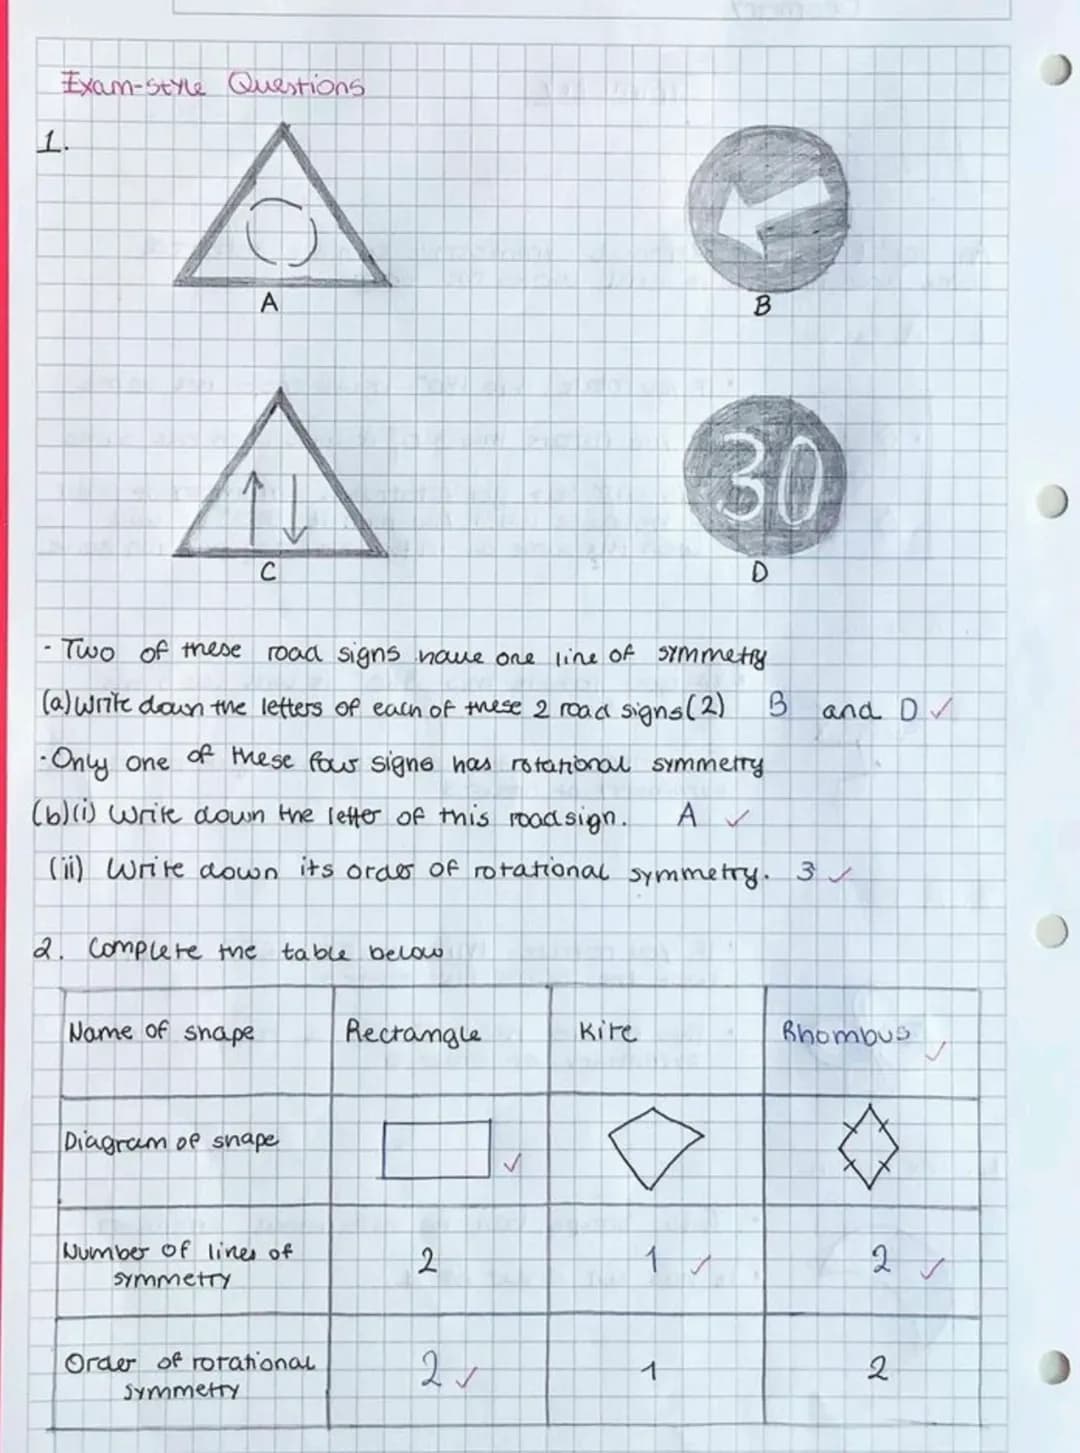 Exam-style Questions
1.
A
B
C
30
D
- Two of these road signs have one line of symmetry
(a) Write down the letters of each of these 2 road signs (2) B and D ✓
- Only one of these four signs has rotational symmetry
(b)(i) Write down the letter of this roadsign. A ✓
(ii) Write down its order of rotational symmetry. 3 ✓
2. Complete the table below
Name of shape Rectangle Kite Rhombus ✓
Diagram of shape ✓
Number of lines of symmetry 2 1 ✓ 2 ✓
Order of rotational symmetry 2 ✓ 1 2